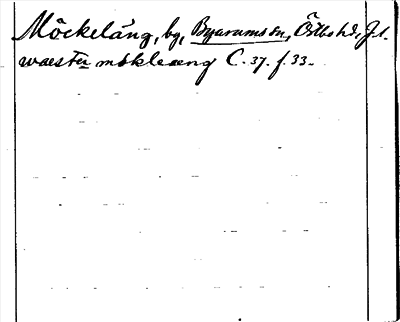 Möckeläng, by, Byarums sn, Östbo hd, J.l.
waestra möklæng C. 37. f. 33.